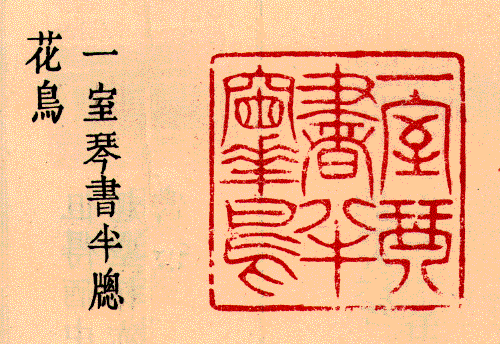 一室琴書半牕
花鳥
一室琴
書半
窻花鳥